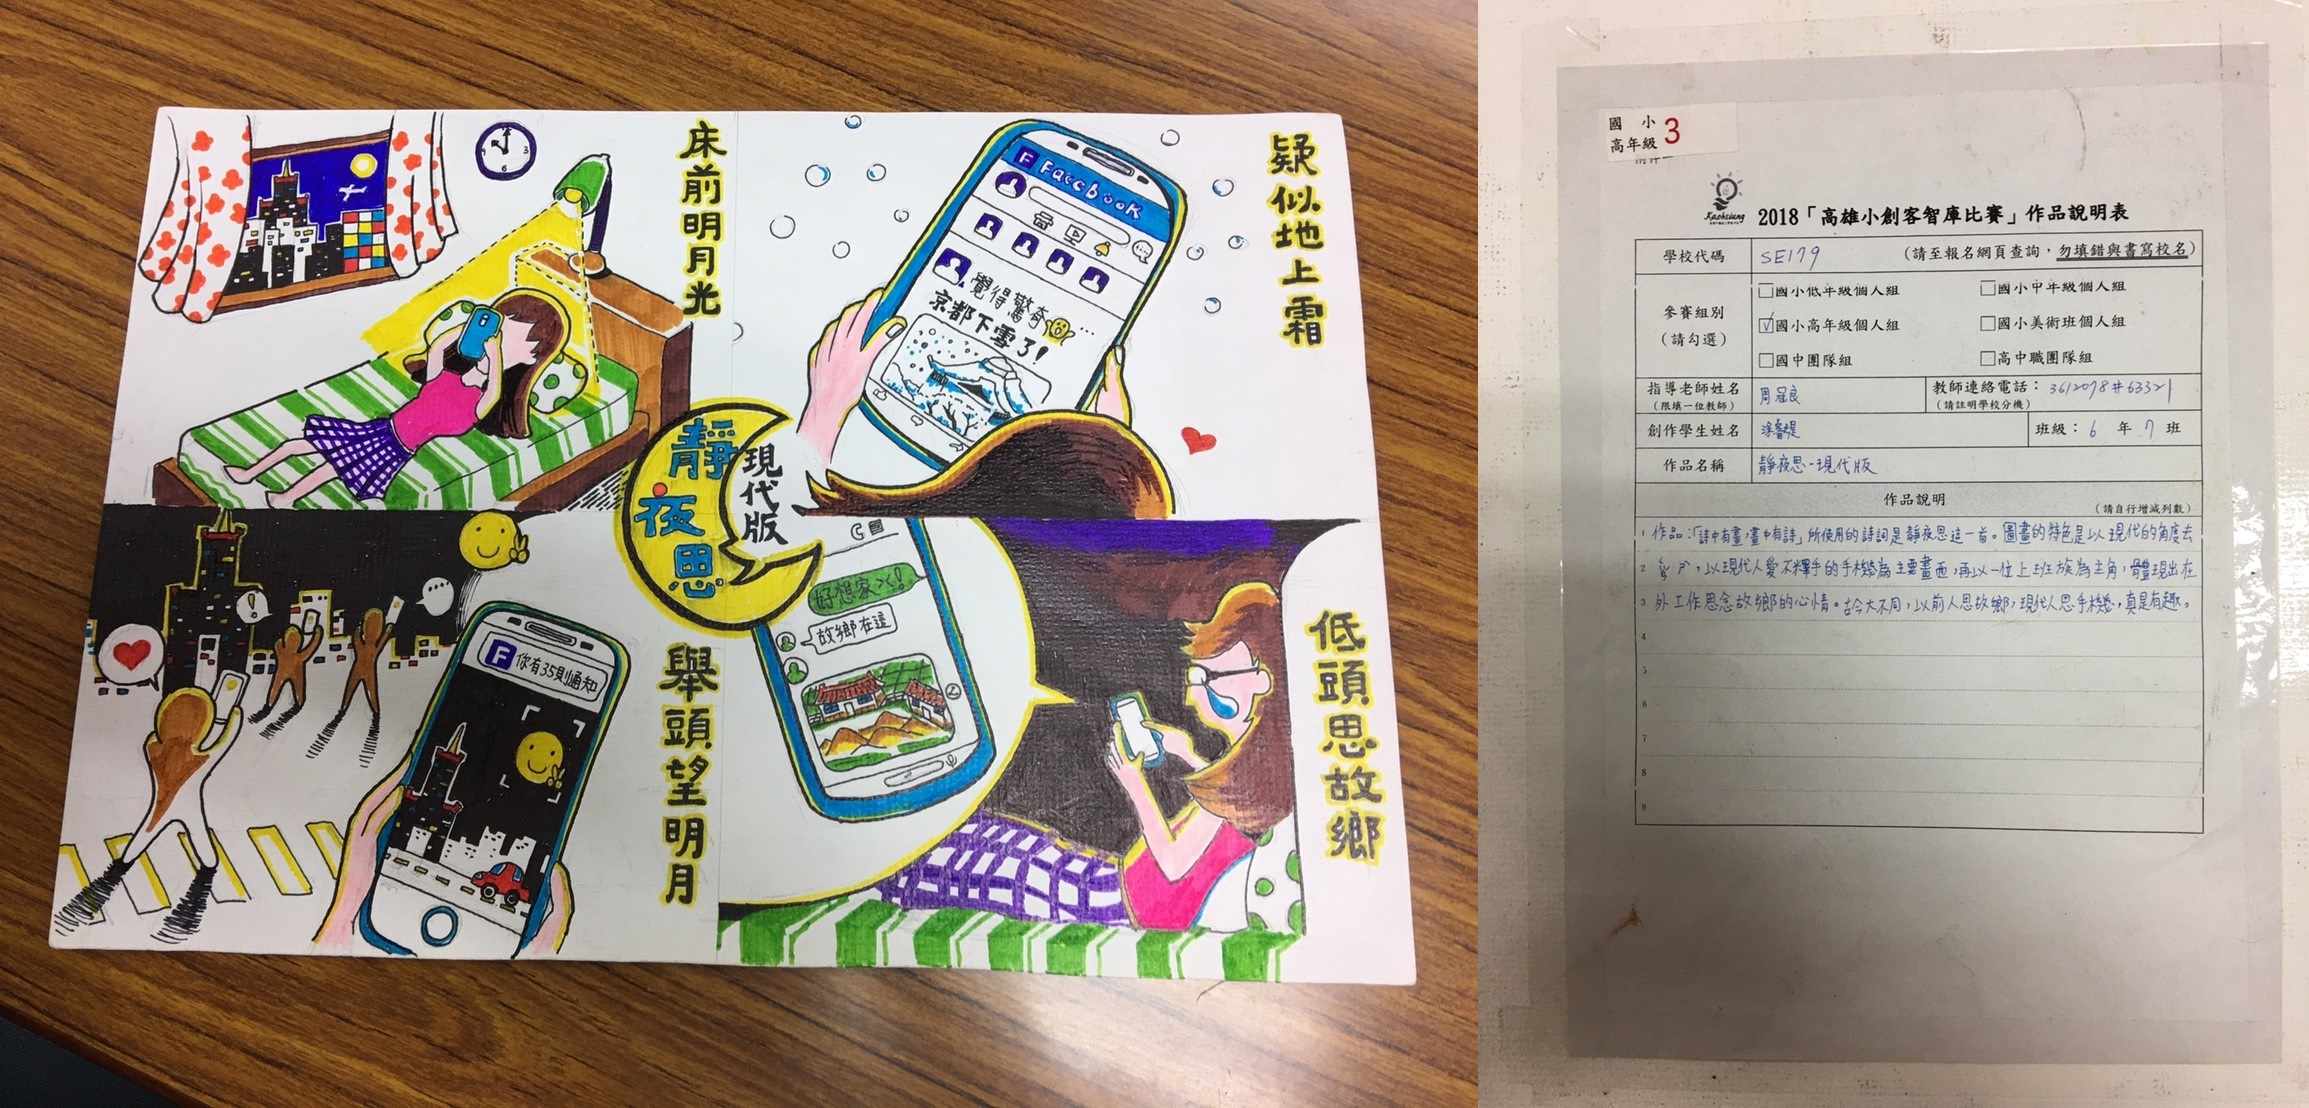 床前明月光
12
3
6
9
疑似地上霜
F Facebook
覺得驚奇 ...
京都下雪了！
靜夜思
現代版
舉頭望明月
!
...
F 你有35則通知
低頭思故鄉
好想家ㄡ!
故鄉在這
國小
高年級 3
附件一
Kaohsiung
2018「高雄小創客智庫比賽」作品說明表
學校代碼 SE179 (請至報名網頁查詢，勿填錯與書寫校名)
參賽組別
(請勾選)
□國小低年級個人組 □國小中年級個人組
☑國小高年級個人組 □國小美術班個人組
□國中團隊組 □高中職團隊組
指導老師姓名 周冠良 教師連絡電話：3612078#63321
(限填一位教師) (請註明學校分機)
創作學生姓名 涂睿媞 班級：6 年 7 班
作品名稱 靜夜思-現代版
作品說明 (請自行增減列數)
1 作品:「詩中有畫,畫中有詩」所使用的詩詞是靜夜思這一首。圖畫的特色是以現代的角度去
2 ，以現代人愛不釋手的手機為主要畫面，再以一位上班族為主角，體現出在
3 外工作思念故鄉的心情。古今大不同，以前人思故鄉，現代人思手機，真是有趣。
4
5
6
7
8
9